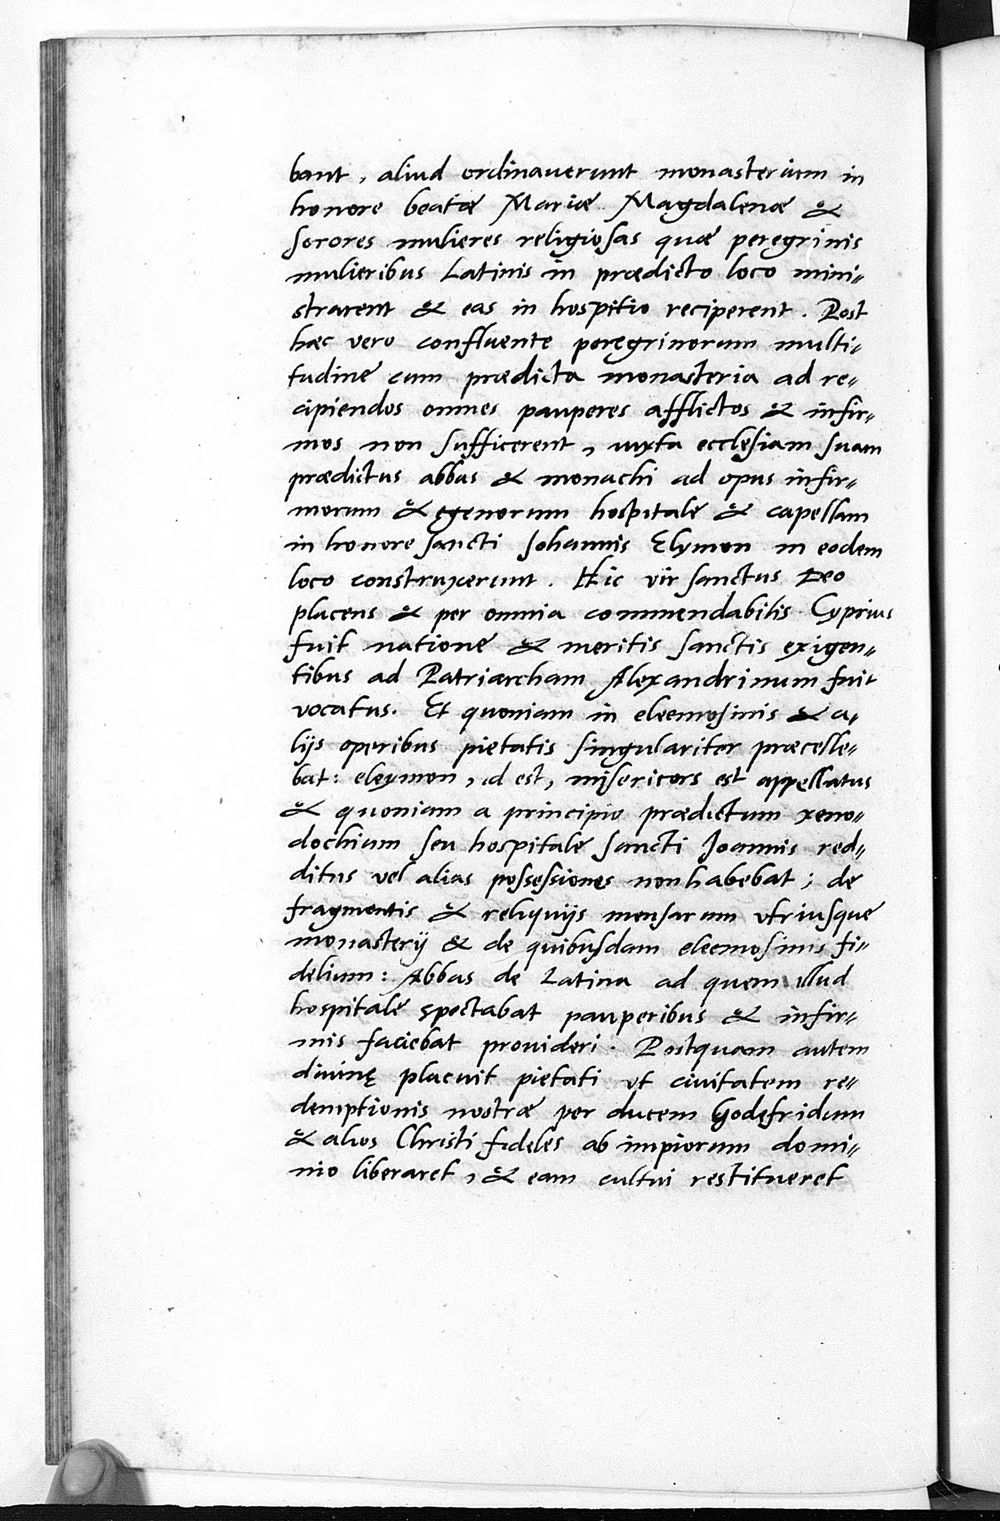 bant, aliud ordinauerunt monasterium in
honore beatæ Mariæ Magdalenæ &
sorores mulieres religiosas quæ peregrinis
mulieribus Latinis in prædicto loco mini=
strarent & eas in hospitio reciperent. Post
hæc vero confluente peregrinorum multi=
tudine cum prædicta monasteria ad re=
cipiendos omnes pauperes afflictos & infir=
mos non sufficerent, iuxta ecclesiam suam
prædictus abbas & monachi ad opus infir=
morum & egenorum hospitale & capellam
in honore sancti Johannis Elymon in eodem
loco construxerunt. Hic vir sanctus Deo
placens & per omnia commendabilis Cyprius
fuit natione & meritis sanctis exigen=
tibus ad Patriarcham Alexandrinum fuit
vocatus. Et quoniam in eleemosinis & a=
lijs operibus pietatis singulariter præcelle=
bat: eleymon, id est, misericors est appellatus
& quoniam a principio prædictum xeno=
dochium seu hospitale sancti Joannis red=
ditus vel alias possessiones non habebat; de
fragmentis & reliquijs mensarum vtriusque
monasterij & de quibusdam eleemosinis fi=
delium: Abbas de Latina ad quem illud
hospitale spectabat pauperibus & infir=
mis faciebat prouideri. Postquam autem
diuinę placuit pietati vt ciuitatem re=
demptionis nostræ per ducem Godefridum
& alios Christi fideles ab impiorum domi=
nio liberaret, & eam cultui restitueret